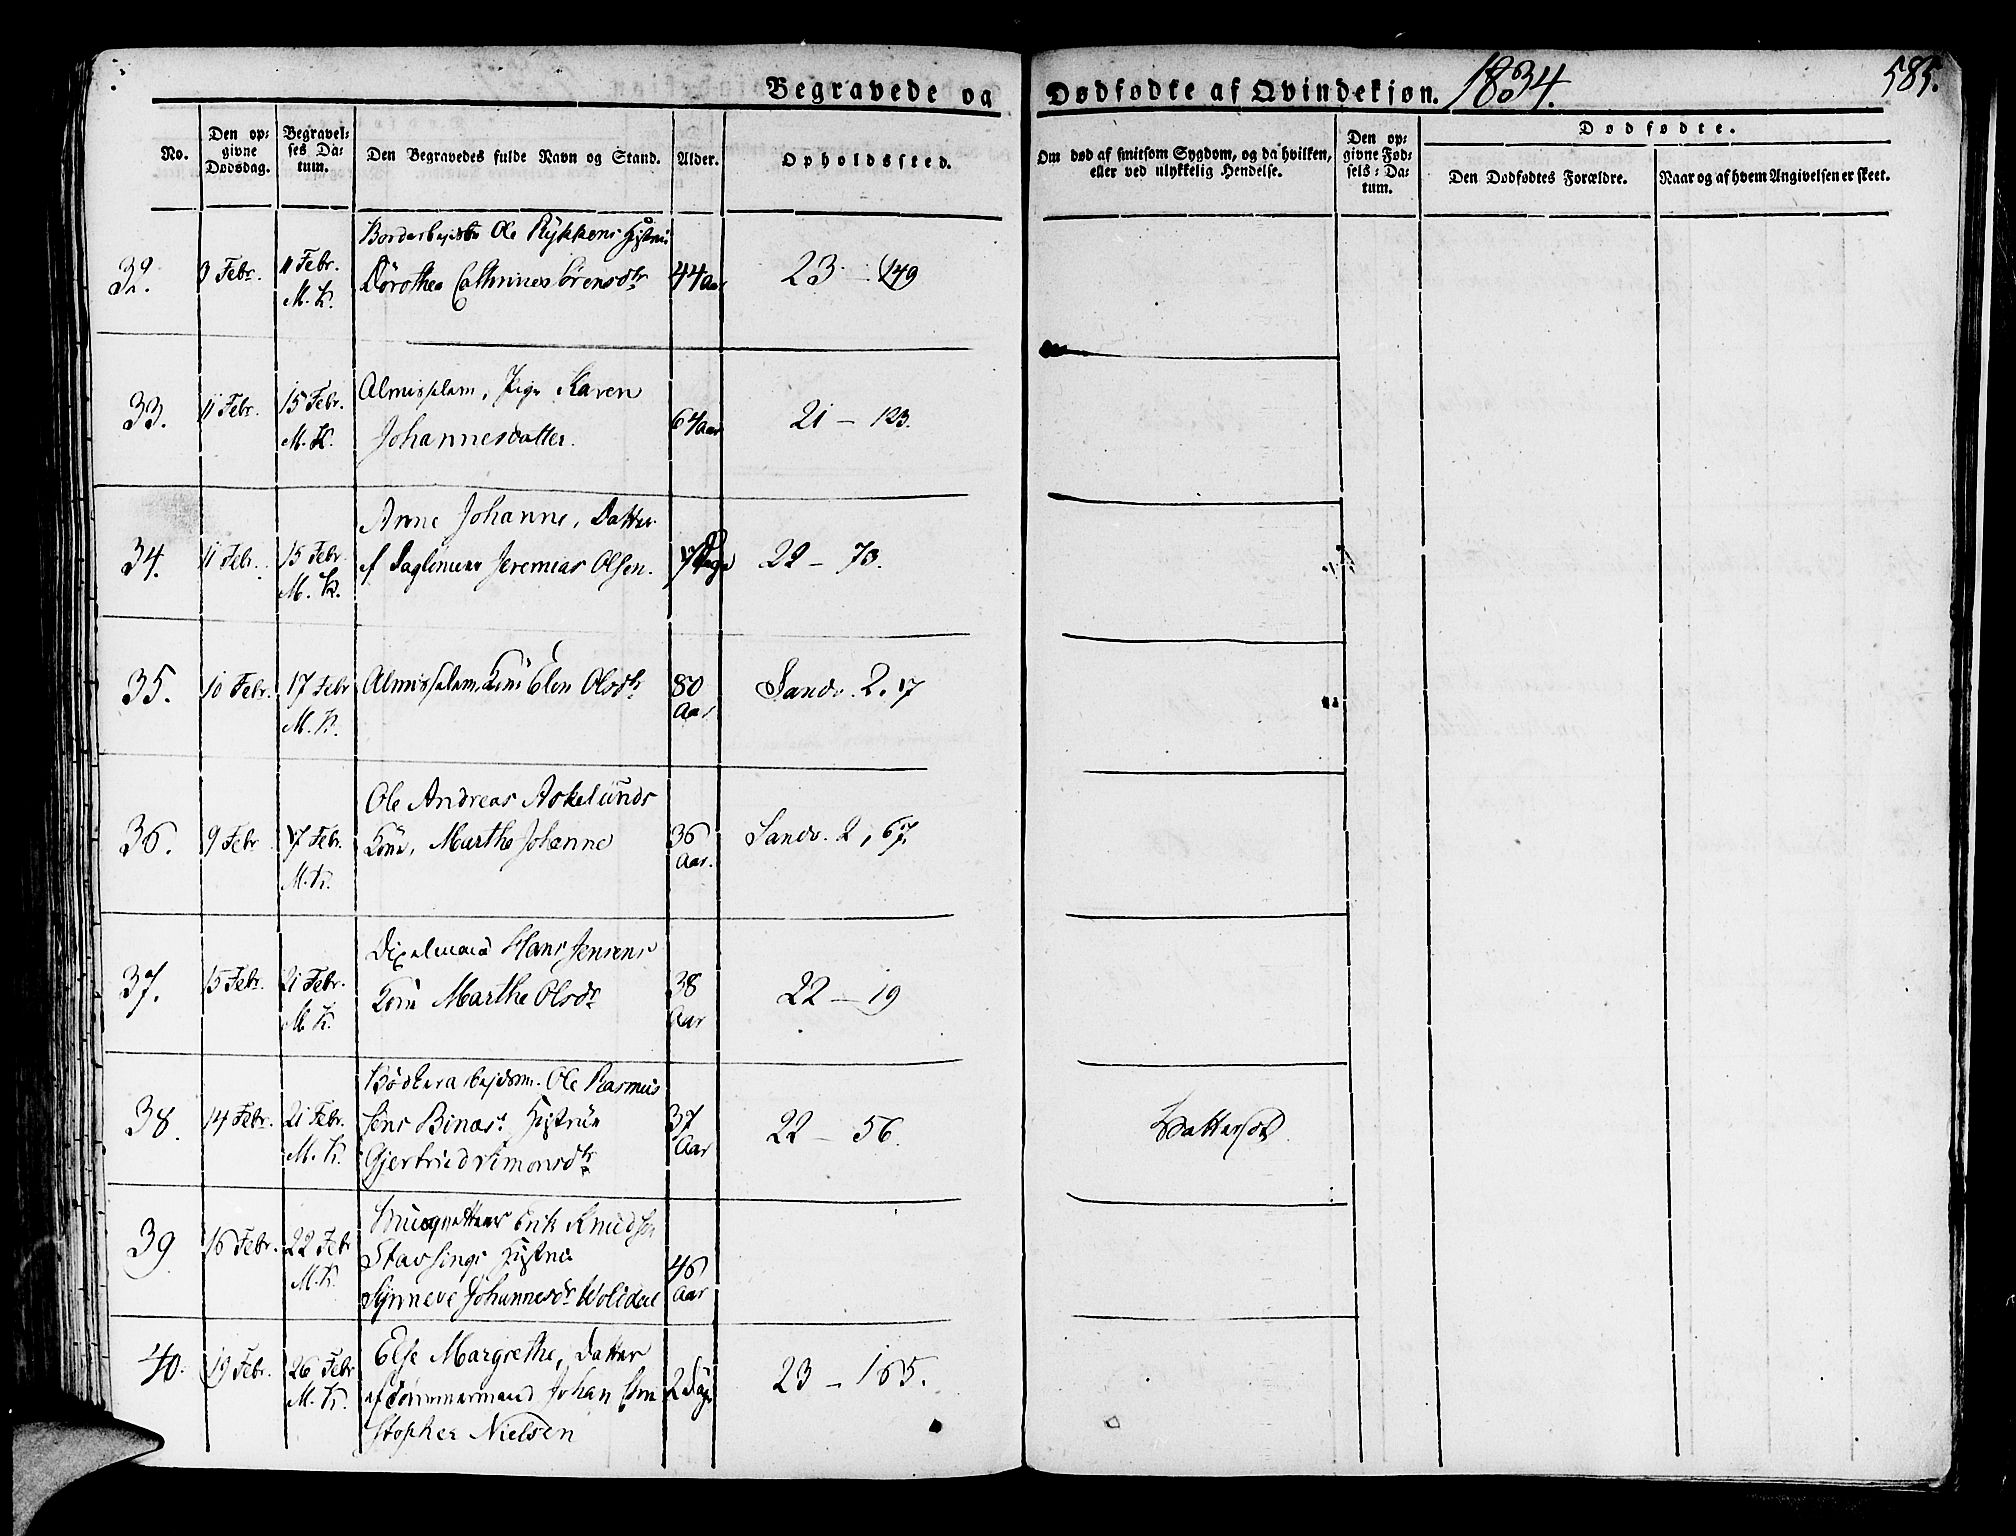 Begravede og Dødfødte af Qvindekjøn. 1834. 585.
No.
Den opgivne Dødsdag.
Begravelses Datum.
Den Begravedes fulde Navn og Stand.
Alder.
Opholdssted.
Om død af smitsom Sygdom, og da hvilken, eller ved ulykkelig Hendelse.
Den opgivne Fødsels-Datum.
Dødfødte.
Den Dødfødtes Forældre.
Naar og af hvem Angivelsen er skeet.
32. 9 Febr. 11 Febr. M. K.
Ole Rykkens Hustrue
Dorothea Sørensdtr 44 Aar 23 - 149
33. 11 Febr. 15 Febr. M. K.
Almisselem, Pige Karen
Johannesdatter. 64 Aar 21 - 123.
34. 11 Febr. 15 Febr. M. K.
Anne Johanne, Datter
af Daglönner Jeremias Olsen. Dage 22 - 73.
35. 10 Febr. 17 Febr M. K.
Almisselem, Kone Elen Olsdtr 80 Aar Sandv. 2. 17
36. 9 Febr 17 Febr. M. K.
Ole Andreas Askelunds
Kone, Marthe Johanne 36 Aar. Sandv. 2, 67.
37. 15 Febr. 21 Febr. M. K.
Hans Jensens
Kone Marthe Olsdr 38 Aar 22 - 19
38. 14 Febr. 21 Febr. M. K.
Bödkerarbejdsm. Ole Rasmus
sens Binæs Hustrue
Gjertrud Simonsdtr 37 Aar 22 - 56.
39 16 Febr. 22 Febr M. K.
Erik Knudsen
Hustrue
Synneve Johannesdr Woldal 46 Aar
40. 19 Febr. 26 Febr M. K.
Else Margrethe, Datter
af Tömmermand Johan Chri
stopher Nielsen 2 Dage 23 - 165.